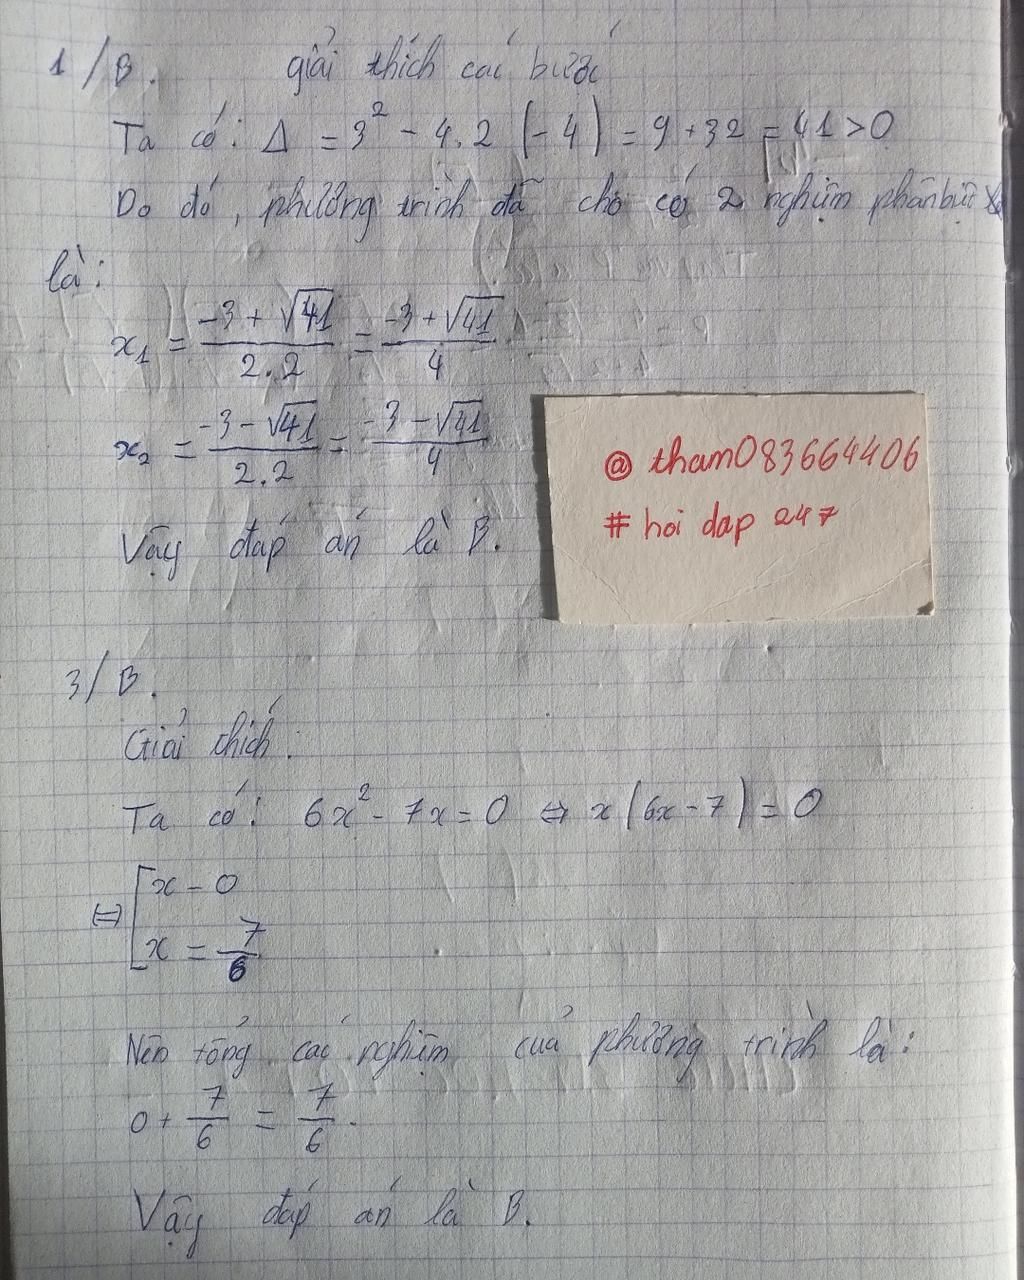 1/B. giải thích các bước
Ta có: Δ = 3² - 4.2 (-4) = 9 + 32 = 41 > 0
Do đó, phương trình đã cho có 2 nghiệm phân biệt
là:
x₁ = (-3 + √41)/(2.2) = (-3 + √41)/4
x₂ = (-3 - √41)/(2.2) = (-3 - √41)/4
@ tham083664406
# hoi dap 247
Vậy đáp án là B.
3/B.
Giải thích:
Ta có: 6x² - 7x = 0 ⇔ x(6x - 7) = 0
⇔ [ x - 0
x = 7/6
Nên tổng các nghiệm của phương trình là:
0 + 7/6 = 7/6.
Vậy đáp án là B.